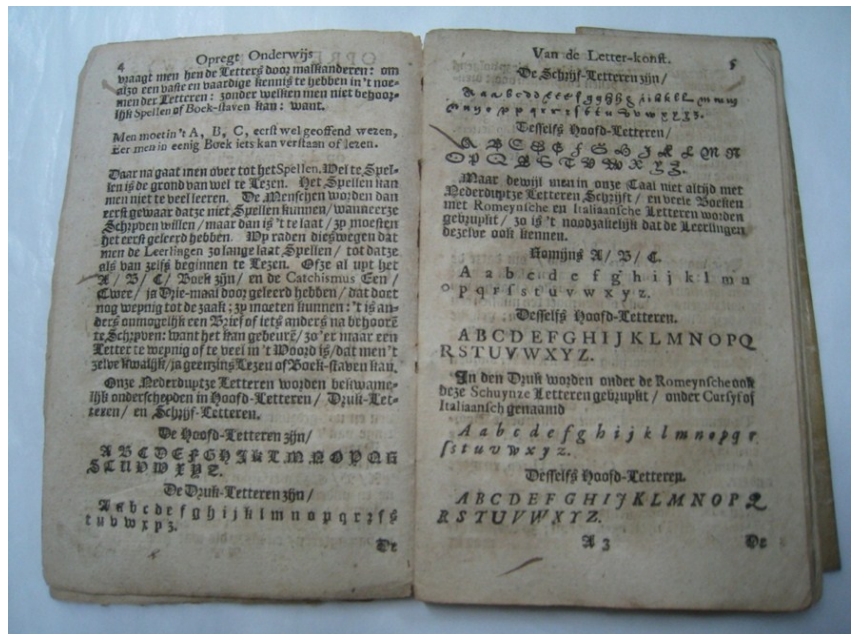 4 Opregt Onderwijs
vraagt men hen de Letters door malkanderen: om
alzo een vaste en vaardige kennis te hebben in 't noe-
men der Letteren: zonder welken men niet behoor-
lijk Spellen of Boek-staven kan: want.
Men moet in 't A, B, C, eerst wel geoffend wezen,
Eer men in eenig Boek iets kan verstaan of lezen.
Daar na gaat men over tot het Spellen. Wel te Spel-
len is de grond van wel te Lezen. Het Spellen kan
men niet te veel leeren. De Menschen worden dan
eerst gewaar datze niet Spellen kunnen / wanneerze
Schryven willen / maar dan is 't te laat / zy moesten
het eerst geleerd hebben. Wy raden dieswegen dat
men de Leerlingen zo lange laat Spellen / tot datze
als van zelfs beginnen te Lezen. Ofze al upt het
A / B / C / Boek zijn / en de Catechismus Een /
Twee / ja Drie-maal door geleerd hebben / dat doet
nog weynig tot de zaak; zy moeten kunnen: 't is an-
ders onmogelijk een Brief of iets anders na behoorē
te Schryven: want het kan gebeurē / zo'er maar een
Letter te weynig of te veel in 't Woord is / dat men 't
zelve kwalijk / ja geenzins Lezen of Boek-staven kan.
Onze Nederduytze Letteren worden bekwame-
lijk onderscheyden in Hoofd-Letteren / Druk-Let-
teren / en Schrijf-Letteren.
De Hoofd-Letteren zijn /
A B C D E F G H I J K L M N O P Q R
S T U V W X Y Z.
De Druk-Letteren zijn /
A a b c d e f g h i j k l m n o p q r z s ſ
t u v w x y z.
De
Van de Letter-konst. 5
De Schrijf-Letteren zijn /
Desselfs Hoofd-Letteren /
A B C D E F G H I J K L M N
O P Q R S T V W X Y Z.
Maar dewijl men in onze Taal niet altijd met
Nederduytze Letteren Schrijft / en veele Boeken
met Romeynsche en Italiaansche Letteren worden
gebruykt / zo is 't noodzakelijk dat de Leerlingen
dezelve ook kennen.
Romijns A / B / C.
A a b c d e f g h i j k l m n
o p q r ſ s t u v w x y z.
Desselfs Hoofd-Letteren.
A B C D E F G H I J K L M N O P Q
R S T U V W X Y Z.
In den Druk worden onder de Romeynsche ook
deze Schuynze Letteren gebruykt / onder Cursyf of
Italiaansch genaamd
A a b c d e f g h i j k l m n o p q r
ſ s t u v w x y z.
Desselfs Hoofd-Letteren.
A B C D E F G H I J K L M N O P Q
R S T U V W X Y Z.
A 3 De